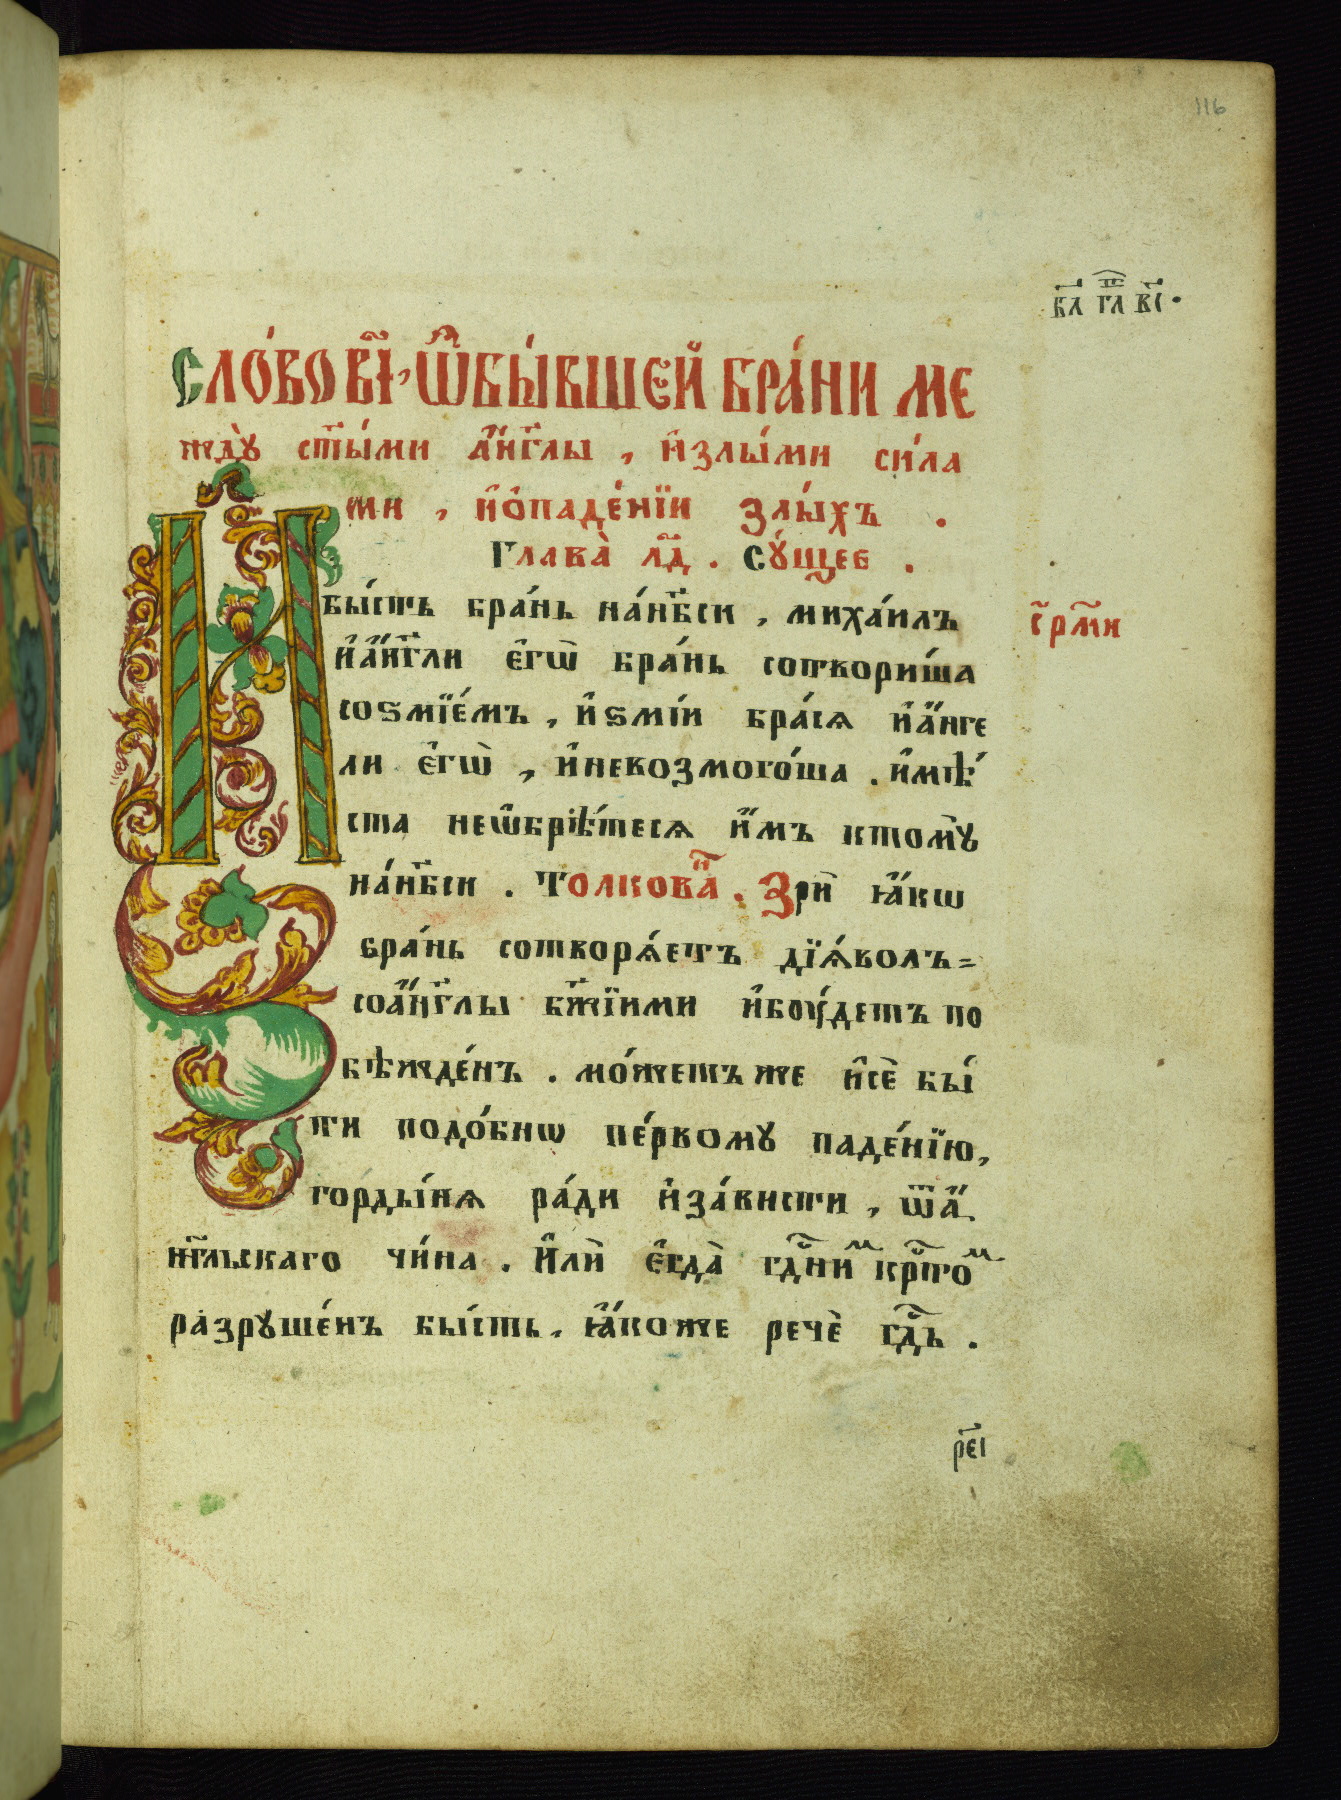 116
вл гл ві.
Сло́во ві, Ѡ҆бы́вшей бра́ни ме
ждꙋ̀ ст҃ы́ми а҆́нг҃лы, и҆злы́ми си́ла
ми, и҆ѻ҆паде́нїи злы́хъ.
Глава̀ л҃д. Сꙋ́щее.
И бы́сть бра́нь на́нб҃си, михаи́лъ
с҃ рм҃и
и҆а҆́нг҃ли є҆гѡ̀ бра́нь сотвори́ша
соѕмїе́мъ, и҆ѕмі́и бра́ся и҆а҆́нге
ли є҆гѡ̀, и҆невозмого́ша. и҆мѣ́
ста неѡ҆брѣ́теся и҆̀мъ ктомꙋ̀
на́нб҃си. Толкова́н. Зрѝ ꙗ҆́кѡ
бра́нь сотворѧ́етъ дїѧ́волъ=
соа҆́нг҃лы бж҃їими и҆боу́детъ по
бѣжде́нъ. мо́жетъже и҆сѐ бы́
ти подо́бнѡ пе́рвомꙋ паде́нїю,
горды́нѧ ра́ди и҆за́висти, ѿа҆́
нг҃льскаго чи́на. И҆лѝ є҆гда̀ гд҃ним крⷭ҇том
разрꙋше́нъ бы́сть. ꙗ҆́коже речѐ гдⷭ҇ь.
р҃еі